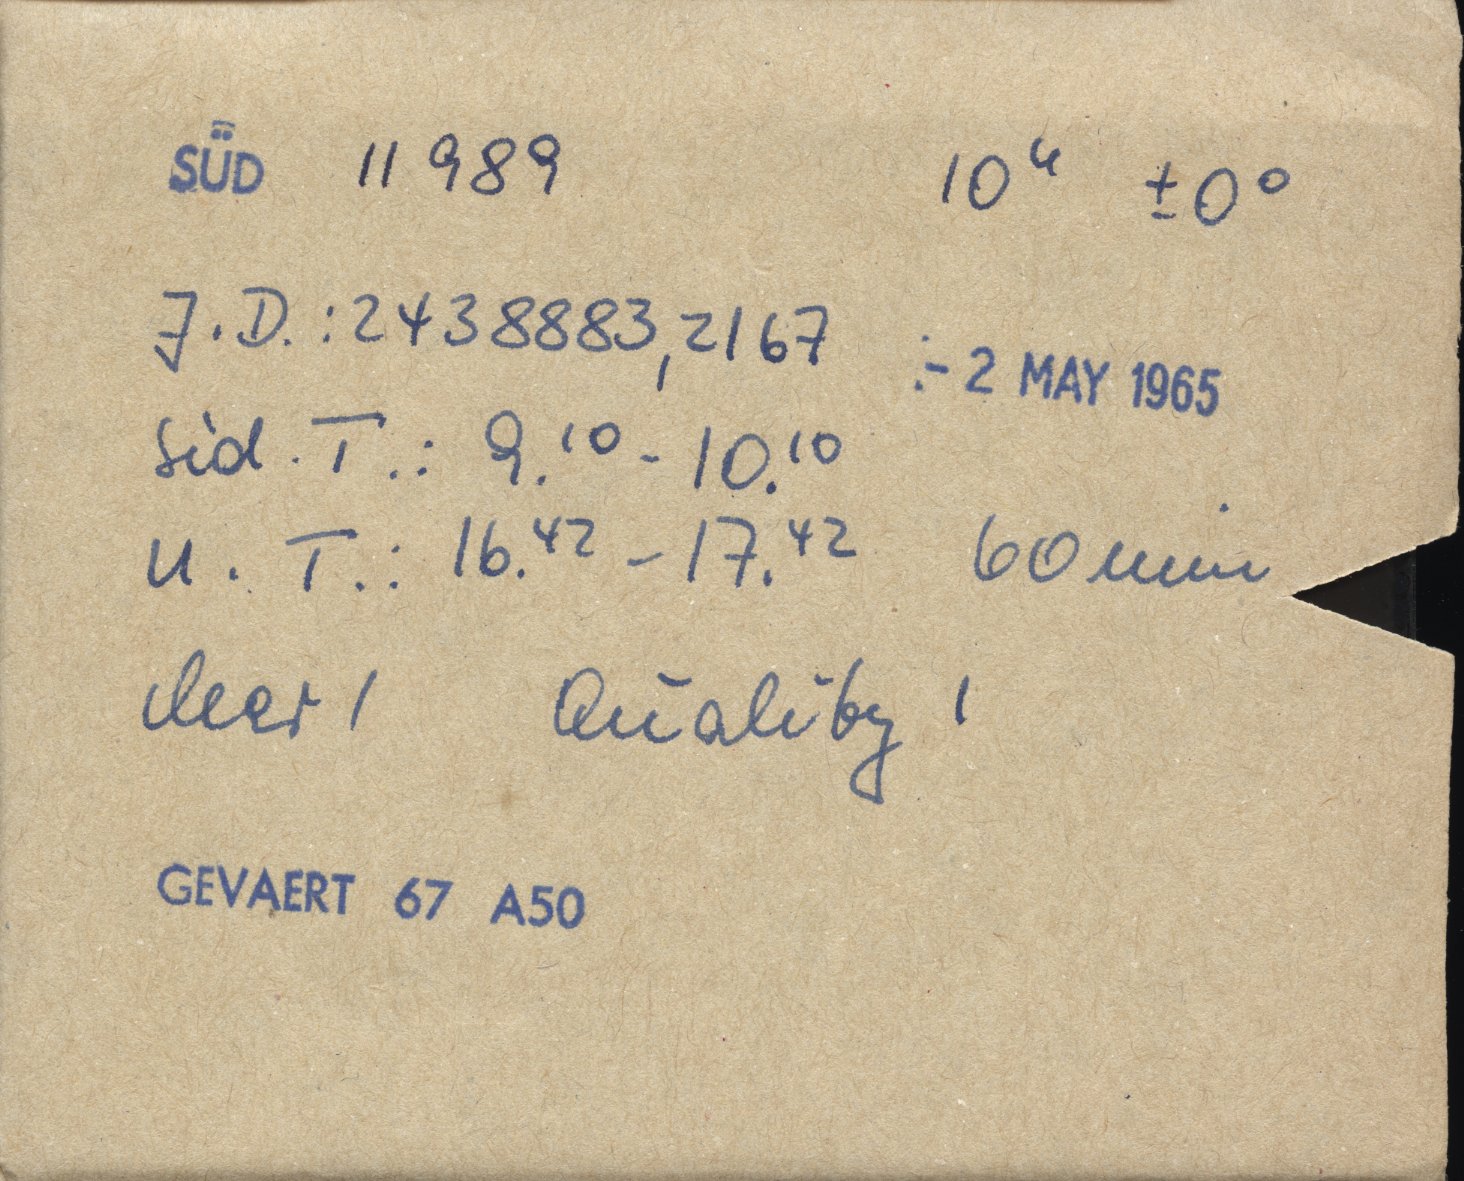 SÜD 11989 10ʰ ±0°
J.D.: 2438883,2167
- 2 MAY 1965
Sid. T.: 9.¹⁰ - 10.¹⁰
U. T.: 16.⁴² - 17.⁴² 60 min
clear 1 Quality 1
GEVAERT 67 A50